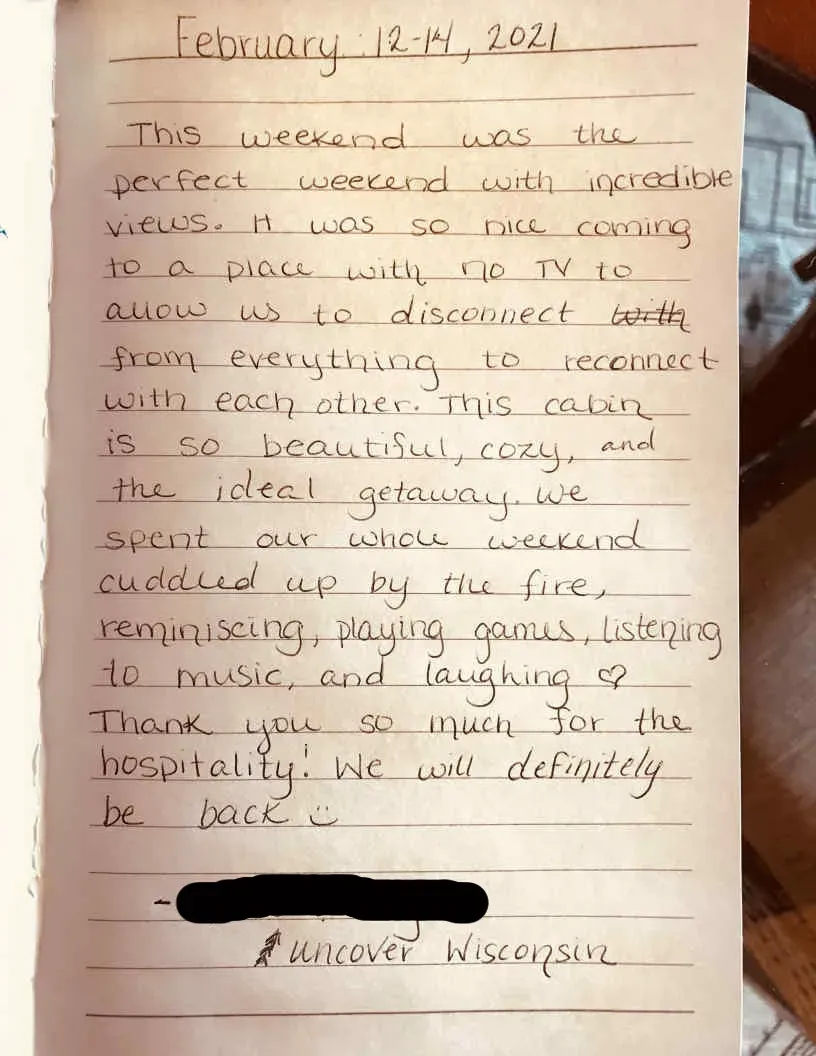 February 12-14, 2021
This weekend was the
perfect weekend with incredible
views. It was so nice coming
to a place with no TV to
allow us to disconnect with
from everything to reconnect
with each other. This cabin
is so beautiful, cozy, and
the ideal getaway. We
spent our whole weekend
cuddled up by the fire,
reminiscing, playing games, listening
to music, and laughing ♡
Thank you so much for the
hospitality! We will definitely
be back :)
-
uncover Wisconsin